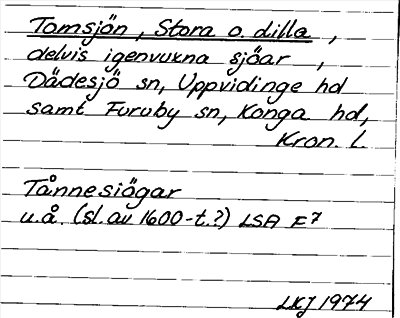 Tomsjön, Stora o. dilla,
delvis igenvuxna sjöar,
Dädesjö sn, Uppvidinge hd
samt Furuby sn, Konga hd,
Kron. l.
Tånnesiägar
u.å. (sl. av 1600-t.?) LSA F7
LKJ 1974